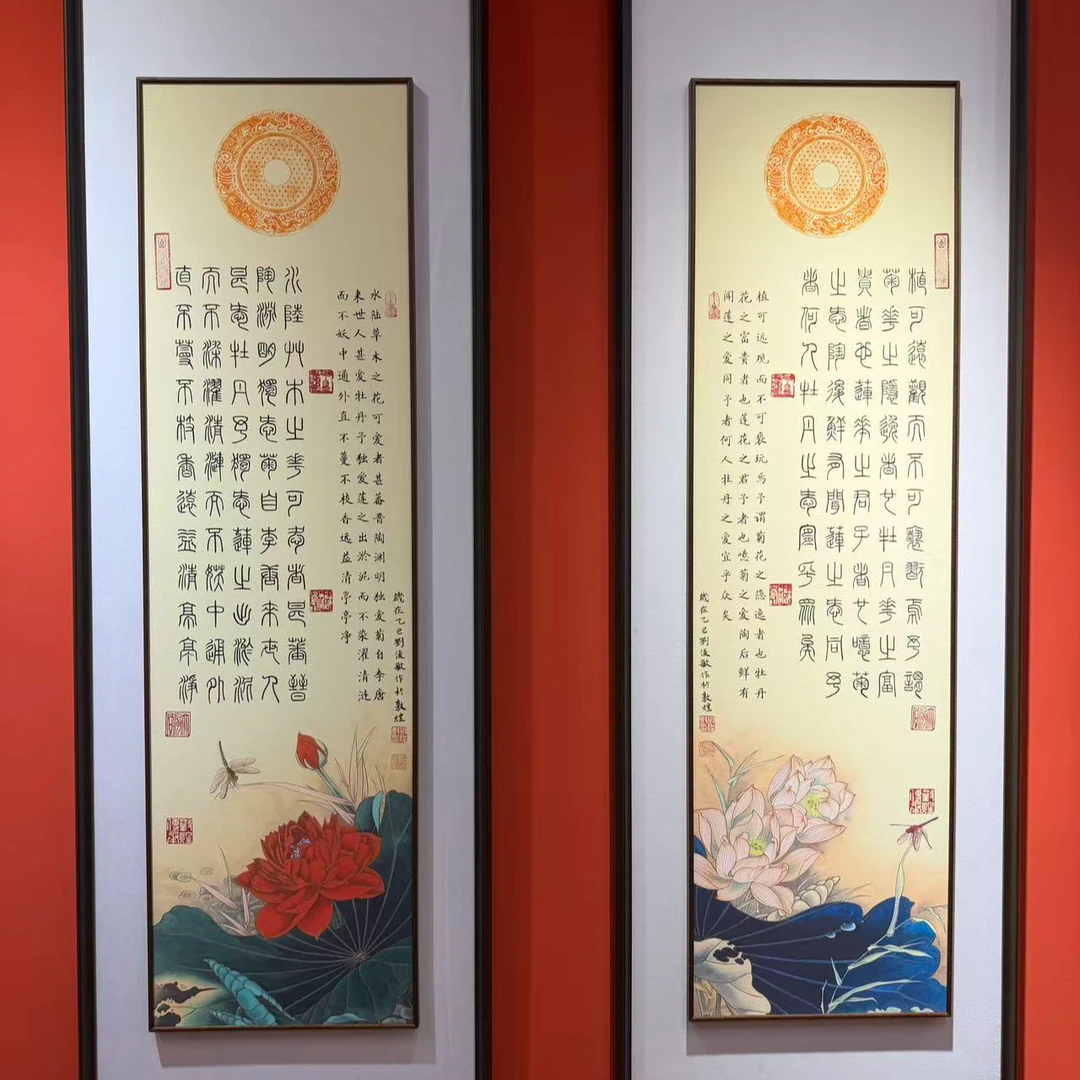 水陆草木之花可爱者甚蕃晋陶渊明独爱菊自李唐
来世人甚爱牡丹予独爱莲之出淤泥而不染濯清涟
而不妖中通外直不蔓不枝香远益清亭亭净
水陸艸木之華可愛者甚蕃晉
陶淵明獨愛菊自李唐來世人
甚愛牡丹予獨愛蓮之出淤泥
而不染濯清漣而不妖中通外
直不蔓不枝香遠益清亭亭淨
歲在乙巳劉俊敏作於敦煌
植可遠觀而不可褻翫焉予謂
菊華之隱逸者也牡丹華之富
貴者也蓮華之君子者也噫菊
之愛陶後鮮有聞蓮之愛同予
者何人牡丹之愛宜乎眾矣
植可远观而不可亵玩焉予谓菊花之隐逸者也牡丹
花之富贵者也莲花之君子者也噫菊之爱陶后鲜有
闻莲之爱同予者何人牡丹之爱宜乎众矣
歲在乙巳劉俊敏作於敦煌